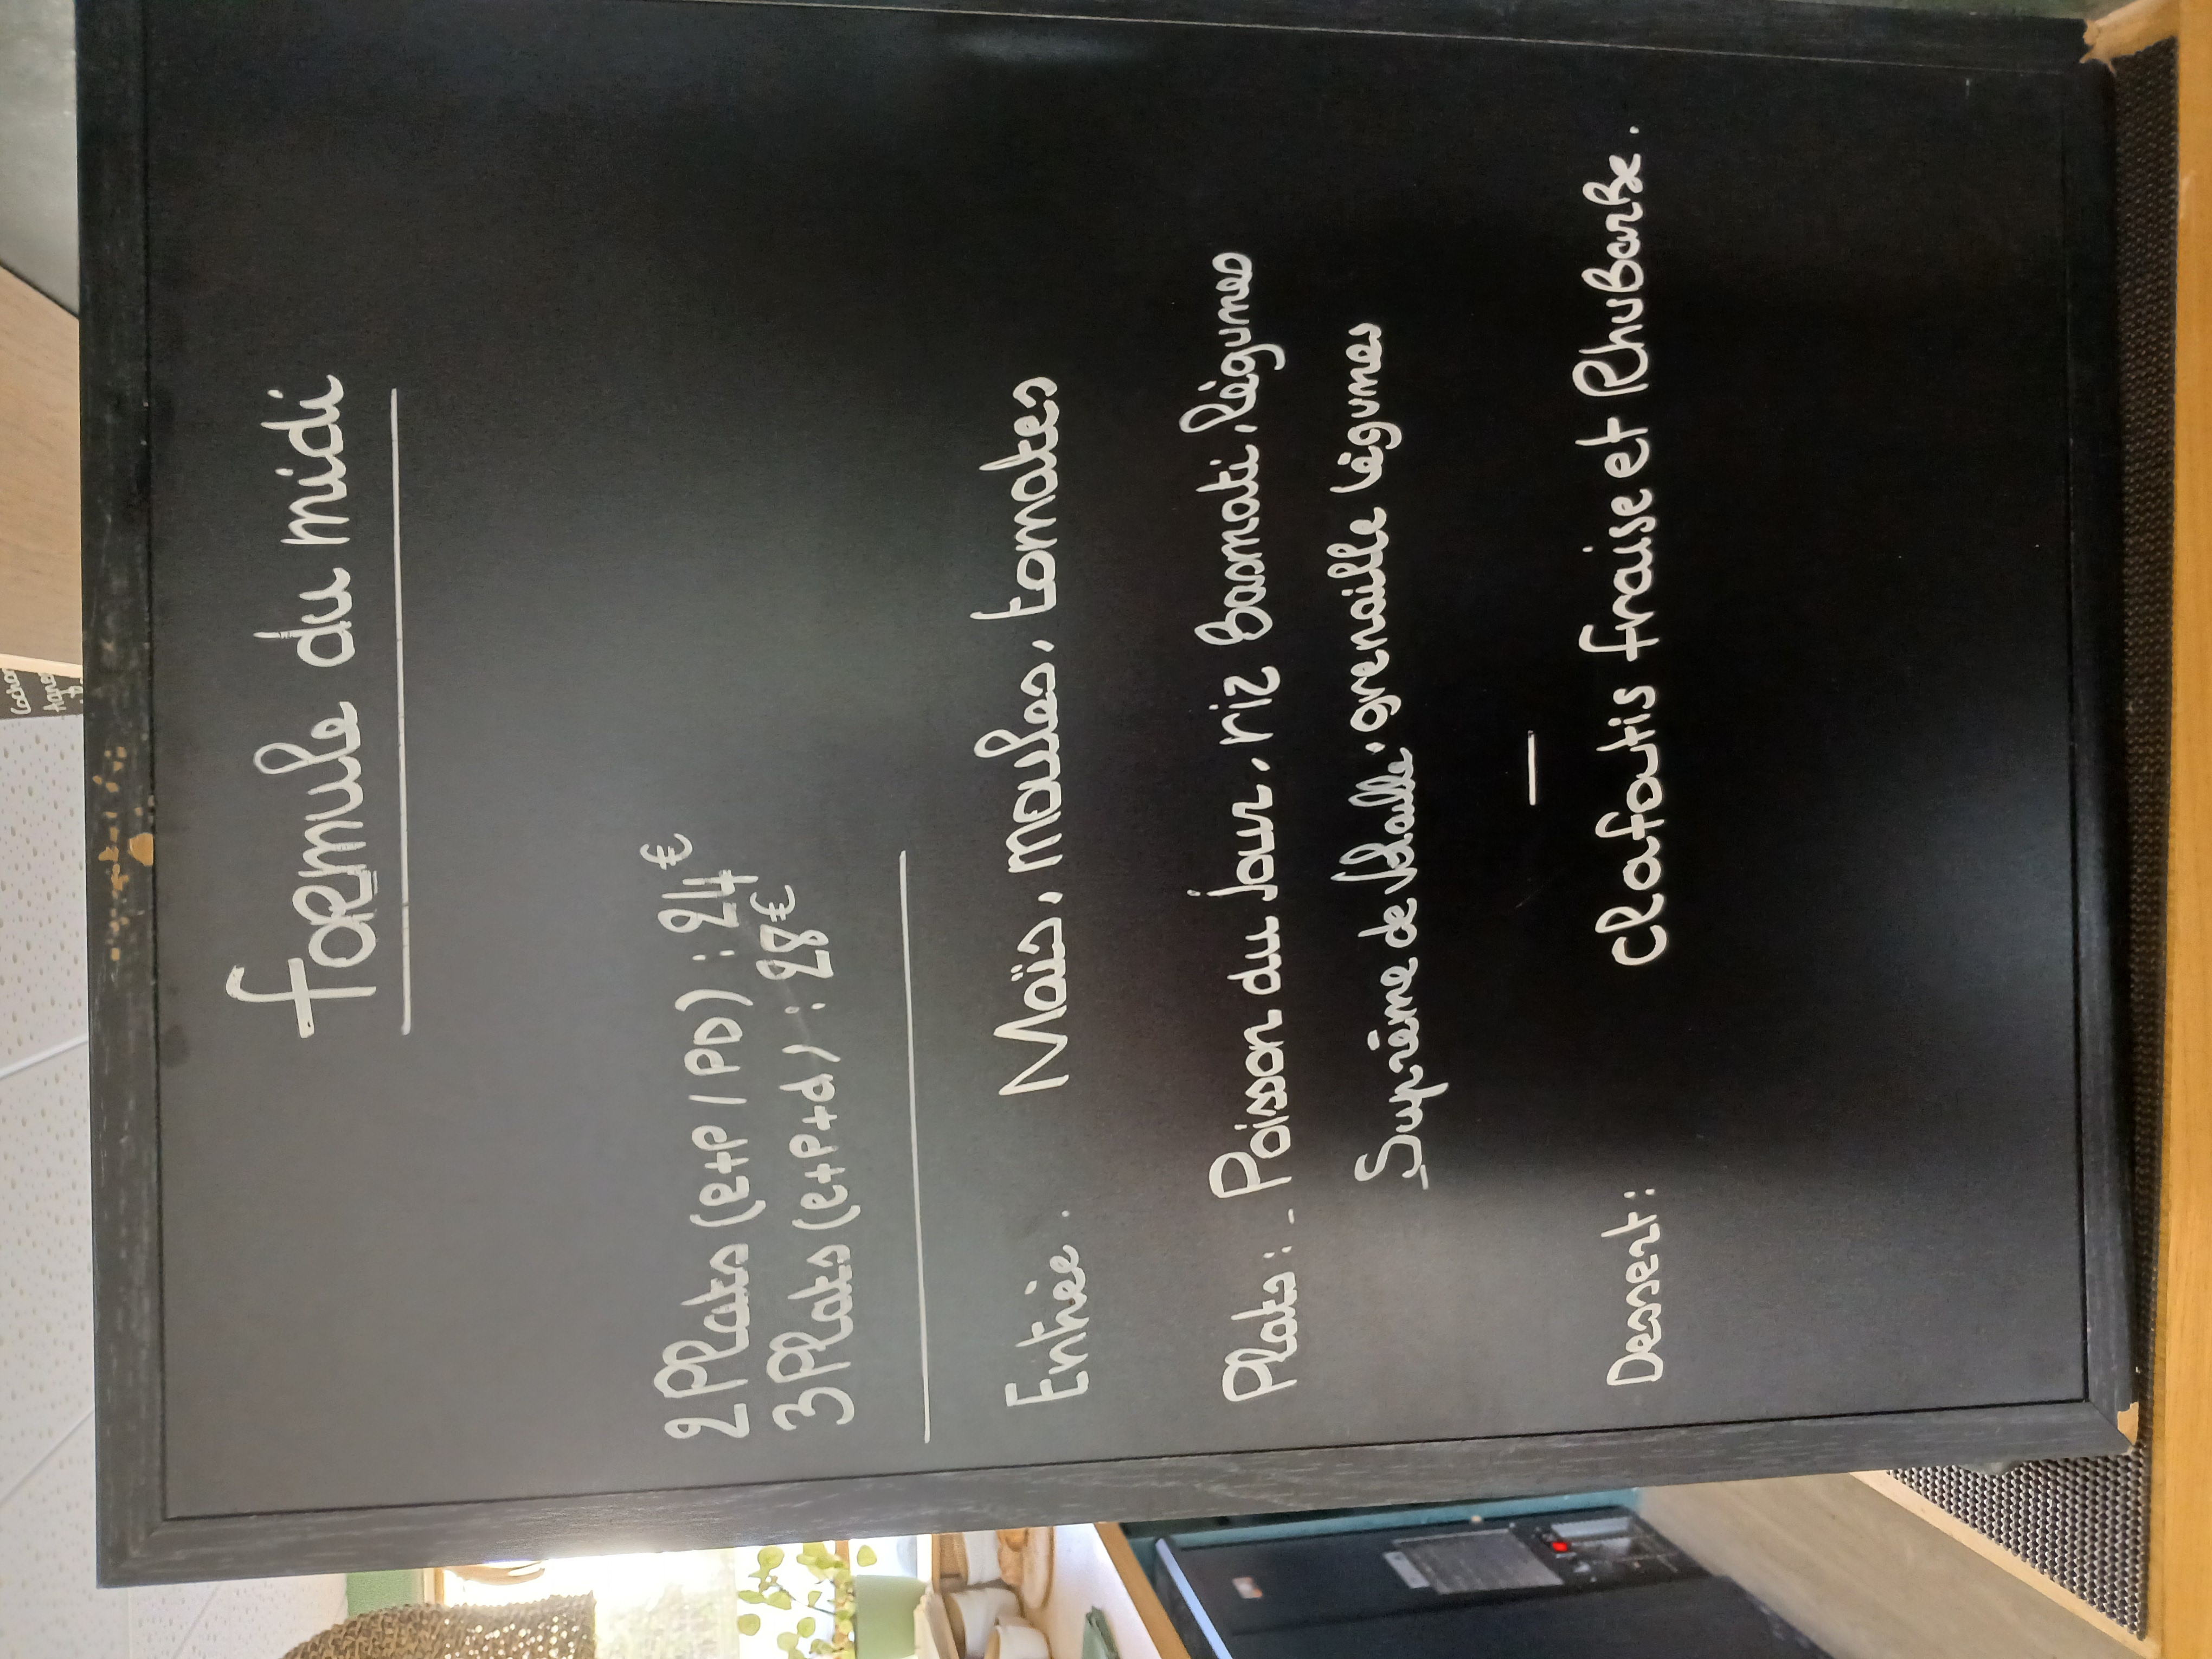 Formule du midi
2 Plats (e+p / PD) : 24€
3 Plats (e+p+d) : 28€
Entrée. Maïs, moules, tomates
Plats: - Poisson du jour, riz basmati, légumes
Suprême de volaille, grenaille légumes
—
Dessert: Clafoutis fraise et Rhubarbe.